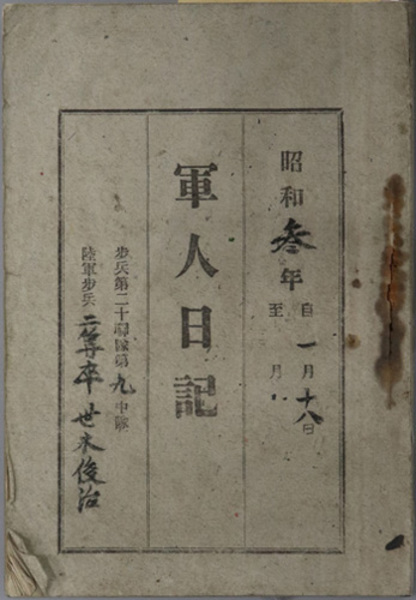 昭和参年 自一月十八日
至 月
軍人日記
歩兵第二十聯隊第九中隊
陸軍歩兵二等卒 世木俊治